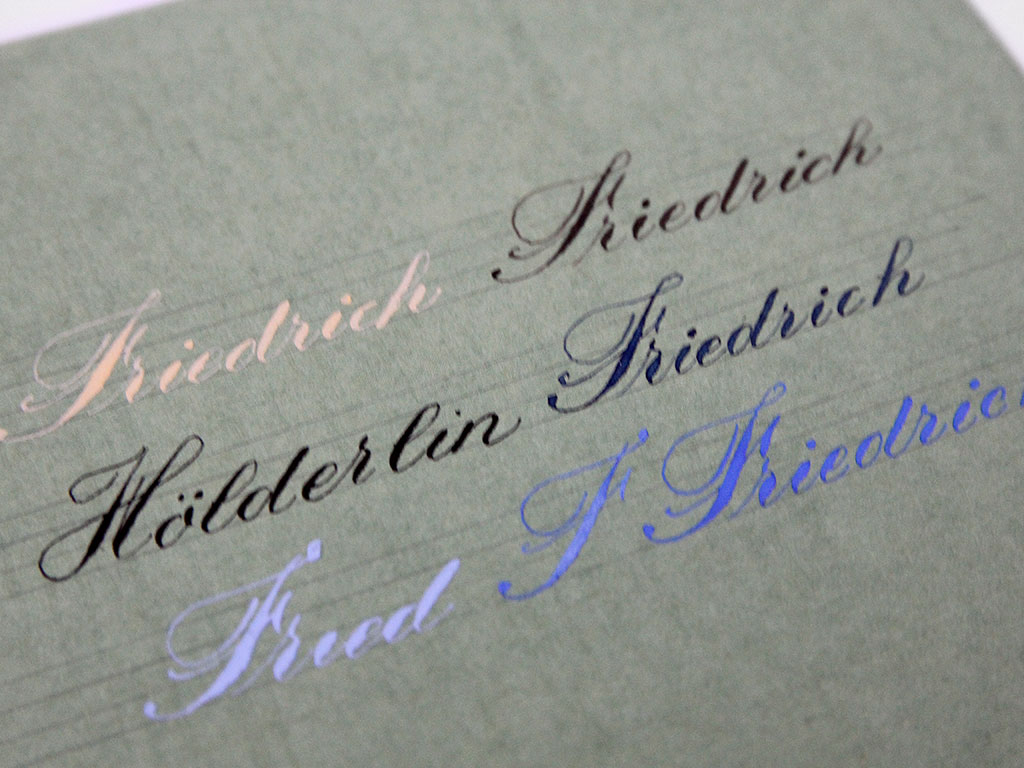 Friedrich Friedrich
Hölderlin Friedrich
Fried F Friedric